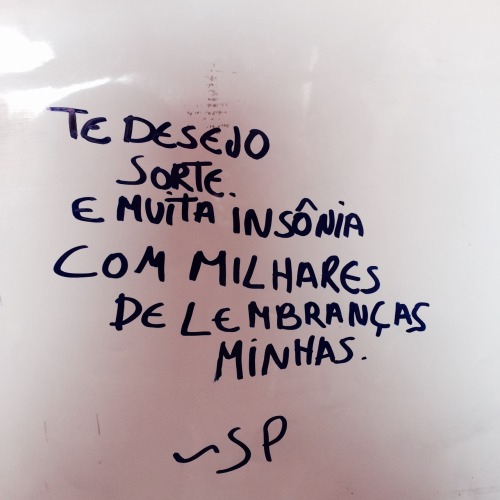 TE DESEJO
SORTE.
E MUITA INSÔNIA
COM MILHARES
DE LEMBRANÇAS
MINHAS.
~SP